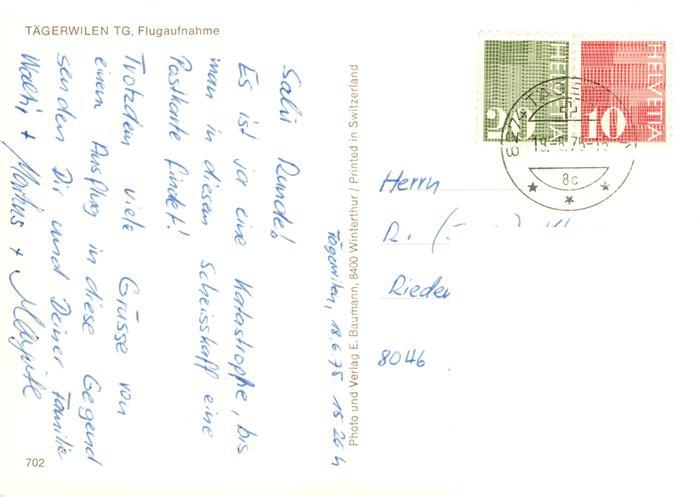 TÄGERWILEN TG, Flugaufnahme
Salü Runde!
Es ist ja eine Katastrophe, bis
man in diesem Scheisskaff eine
Postkarte findet!
Trotzdem viele Grüsse von
einem Ausflug in diese Gegend
senden Dir und Deiner Familie
Walti + Markus +
Tägerwilen, 18.6.75 15.26 h
Photo und Verlag E. Baumann, 8400 Winterthur / Printed in Switzerland
702
HELVETIA 20
HELVETIA 10
8274 TÄGE
18.-6.75-15
8c
Herrn
R.
Rieden
8046